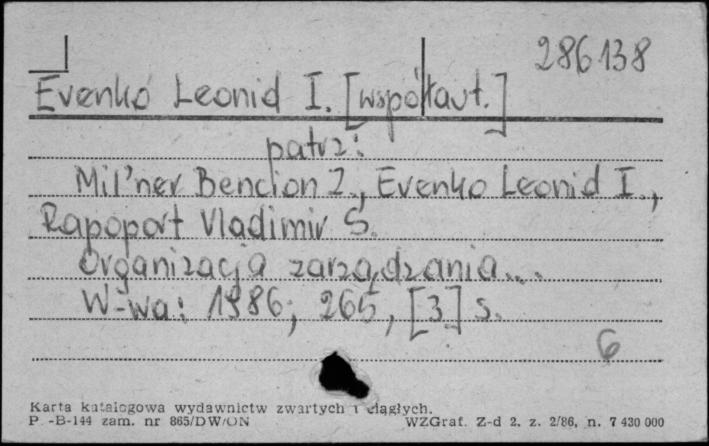 286138
Evenko Leonid I. [współaut.]
patrz:
Mil'ner Bencion Z., Evenko Leonid I.,
Rapoport Vladimir S.
Organizacja zarządzania...
W-wa: 1986; 265, [3] s.
6
Karta katalogowa wydawnictw zwartych i ciągłych.
P.-B-144 zam. nr 865/DW/ON
WZGraf. Z-d 2, z. 2/86, n. 7 430 000